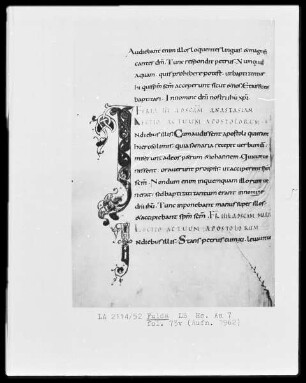 Audiebant enim illos loquentes linguis & magnifi
cantes dm̄. Tunc respondit petrus. Numquid
aquam quis prohibere potest ut baptizentur
hi qui spm̄ scm̄ acceperunt sicut & nos. Et iussit eos
baptizari. In nomine dn̄i nostri ihu xp̄i
LECTIO ACTUUM APOSTOLORUM
In diebus illis. Cum audissent apostoli qui erant
hierosolimis. quia samaria recepit uerbum di.
miserunt ad eos petrum & iohannem. Qui cum ue
nissent. orauerunt pro ipsis ut acciperent spm̄
scm̄. Nondum enim in quemquam illorum ue
nerat. sed baptizati tantum erant in nomine
dn̄i ihu. Tunc inponebant manus super illos
& accipiebant spm̄ scm̄.
LECTIO ACTUUM APOSTOLORUM
In diebus illis. Stans petrus cum
LA 2114/52 Fulda LB Hs. Aa 7
fol. 75v (Aufn. 1962)